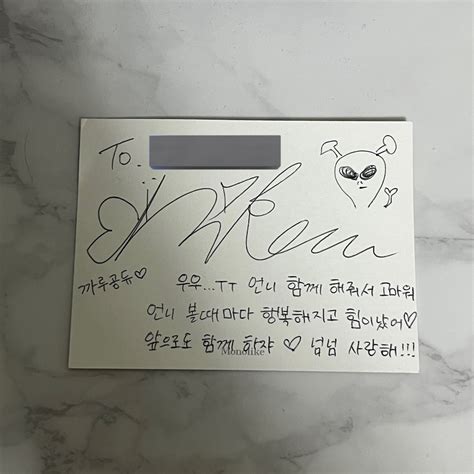 To.
까루공듀♡ 우우...TT 언니 함께 해줘서 고마워
언니 볼때마다 행복해지고 힘이났어♡
앞으로도 함께 하쟈 ♡ 넘넘 사랑해!!!
Monolike